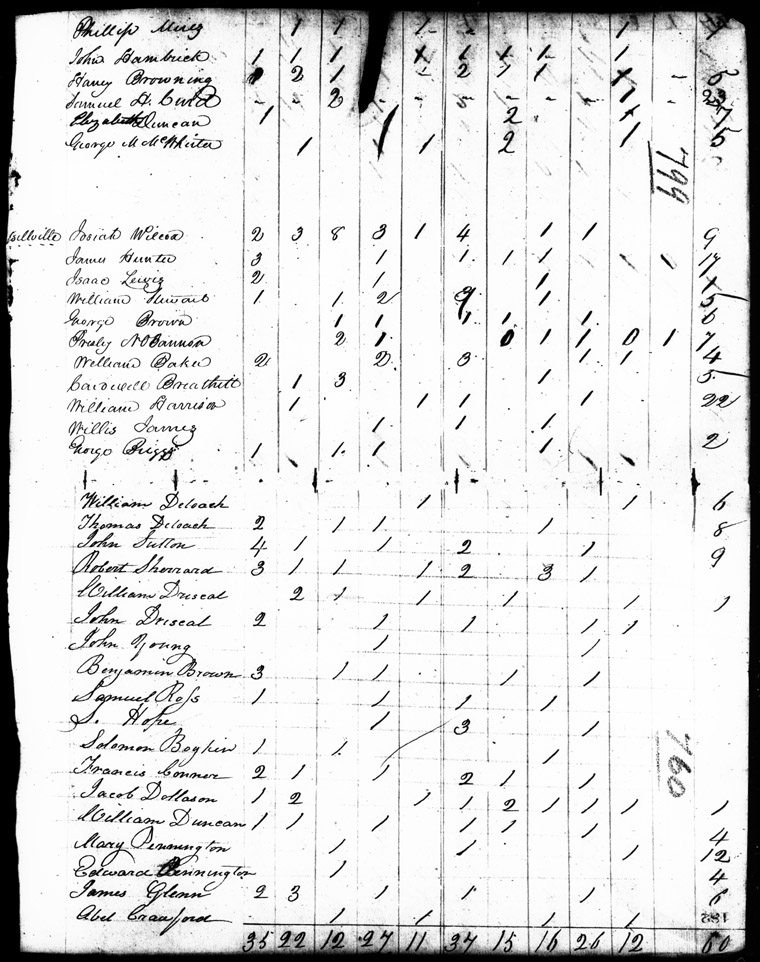 Phillip 1 1 1 1
John Hambrick 1 1 1 x 1 x 1 1
Haney Browning 2 1 - 2 1 1 x - 5
Samuel H. - - 2 - - - - - 1 23
Elizabeth Duncan 1 1 2 x 7
George M McWhirter 1 1 2 1 5
799
Josiah Wilcox 2 3 8 3 1 4 1 1 9
James Hunter 3 1 1 1 1 1 17
Isaac Lewis 2 1 1 x
William Stewart 1 1 2 9 1 5
George Brown 1 1 1 1 1 6
Presly N OBannon 2 1 0 1 1 0 1 7
William Baker 2 2 3 1 1 4
Cardwell Breathitt 1 3 1 5
William Harrison 1 1 1 1 22
Willis James 1 1 1
George Briggs 1 1 1 1 2
William Deloach 1 1 6
Thomas Deloach 2 1 1 1 8
John Sutton 4 1 1 2 1 9
Robert Sherrard 3 1 1 1 2 3 1
William Driscal 2 1 1 1 1 1
John Driscal 2 1 1 1 1
John Young 1 1
Benjamin Brown 3 1 1 1 1
Samuel Ross 1 1 1 1
S. Hope 1 3 1
760
Solomon Boykin 1 1 1
Francis Connor 2 1 1 2 1 1
Jacob Dollason 1 2 1 1 2 1 1 1 1
William Duncan 1 1 1 1 1 1
Mary Pennington 1 1 1 4
Edward Pennington 1 12
James Glenn 2 3 1 1 1 6
Abel Crawford 1 1 1 1
35 22 12 27 11 37 15 16 26 12 60